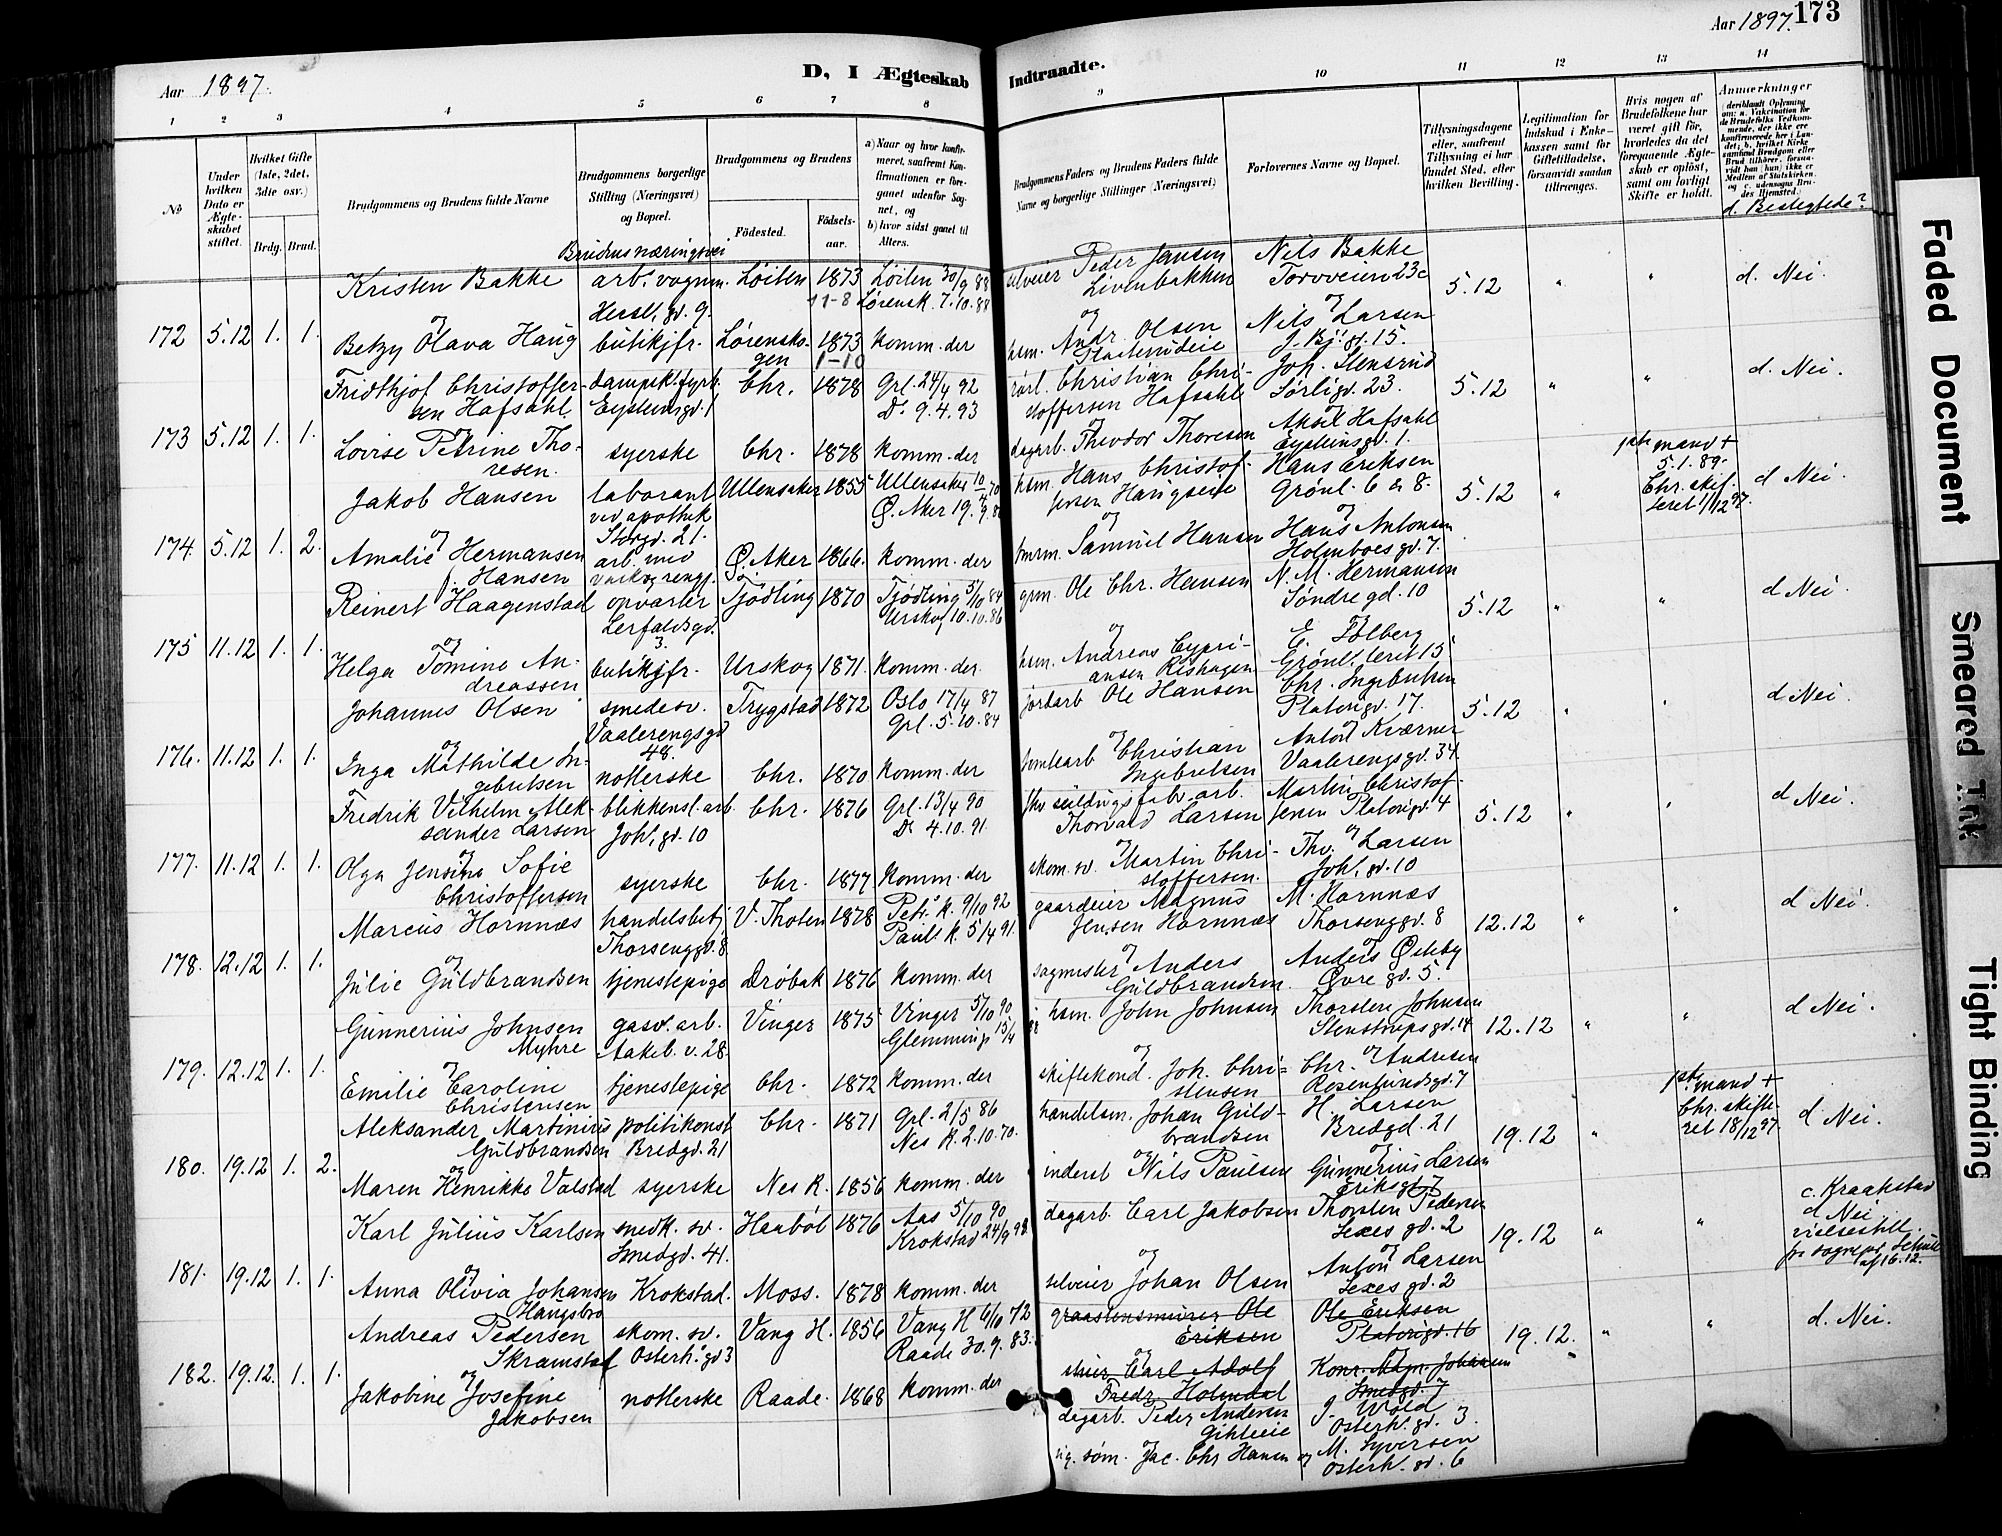 Aar 1897.
D, I Ægteskab Indtraadte.
Aar 1897. 173
1 2 3 4 5 6 7 8 9 10 11 12 13 14
No
Under hvilken Dato er Ægteskabet stiftet.
Hvilket Gifte (1ste, 2det, 3die osv.)
Brdg. Brud.
Brudgommens og Brudens fulde Navne
Brudgommens borgerlige Stilling (Næringsvei) og Bopæl.
Brudens næringsvei
Brudgommens og Brudens
Fødested. Fødselsaar.
a) Naar og hvor konfirmeret, saafremt Konfirmationen er foregaaet udenfor Sognet, og
b) hvor sidst gaaet til Alters.
Brudgommens Faders og Brudens Faders fulde Navne og borgerlige Stillinger (Næringsvei)
Forlovernes Navne og Bopæl.
Tillysningsdagene eller, saafremt Tillysning ei har fundet Sted, efter hvilken Bevilling.
Legitimation for Indskud i Enkekassen samt for Giftetilladelse, forsaavidt saadan tiltrænges.
Hvis nogen af Brudefolkene har været gift før, hvorledes da det foregaaende Ægteskab er opløst, samt om lovligt Skifte er holdt.
Anmerkninger
d. Beslegtede?
Kristen Bakke arb. vognm. Løiten 1873 Løiten 30/9 88 selveier Peder Jansen Nils Bakke 5.12 " " d. Nei.
Hersl. gd. 9. 11-8 Lørensk. 7.10.88 Livenbakken Torvveien 23c
172 5.12 1. 1. og
Betzy Olava Haug butikjfr. Lørenskogen 1873 komm. der hsm. Andr. Olsen Nils Larsen
1-10 J. Bj. gd. 15.
Fridthjof Christoffersen Hafsahl dampsk. fyrb. Chr. 1878 Grl. 24/4 92 Christian Christoffersen Hafsahl Joh. Stensrud 5.12 " " d. Nei.
Eysteinsgd. 1 D. 9.4.93 Sørligd. 23.
173 5.12 1. 1. og
Lovise Petrine Thoresen. syerske Chr. 1878 komm. der dagarb. Theodor Thoresen Aksel Hafsahl
Eysteinsgd. 1.
Jakob Hansen laborant Ullensaker 1855 Ullensaker 10/4 70 hsm. Hans Christofersen Haugseie Hans Eriksen 5.12 " 1ste mand + 5.1.89. Chr. skifteret 1/12 97. d Nei.
ved apothek Storgd. 21. Ø. Aker Grønl. 6 & 8.
174. 5.12 1. 2. og
Amalie Hermansen f. Hansen arb. med vask og rengj. Ø. Aker 1866. komm. der Samuel Hansen Hans Antonsen
Holmboes gd. 7.
Reinert Haagenstad opvarter Tjødling 1870 Tjødling 5/10 84 grm. Ole Chr. Hansen N. M. Hermansen 5.12 " " d Nei
Lerfaldsgd. 3. Urskog 10.10.86 Søndre gd. 10
175 11.12 1. 1. og
Helga Tomine Andreassen butikjfr. Urskog 1871. komm. der. hsm. Andreas Cypriansen Rishagen E. Folberg
Grønl. leret 15
Johannes Olsen smedesv. Trygstad 1872 Oslo 17/4 87 jordarb Ole Hansen Chr. Ingebretsen 5.12 d Nei.
Vaalerengsgd 48. Grl. 5.10.84 Platousgd. 17.
176. 11.12 1. 1. og
Inga Mathilde Ingebretsen noterske Chr. 1870 komm. der Christian Ingebretsen Anton Kværner
Vaalerengsgd. 34.
Fredrik Vilhelm Aleksander Larsen blikkensl. arb. Chr. 1876 Grl. 13/4 90 seildugsfabr. arb. Thorvald Larsen Martin Christofersen Platousgd. 4 5.12 d Nei.
Joh. gd. 10 D. 4.10.91.
177. 11.12 1. 1. og
Olga Jensine Sofie Christoffersen syerske Chr. 1877 komm. der skom. sv. Martin Christoffersen. Thv. Larsen
Joh. gd. 10
Marcus Hornnæs handelsbetj. V. Thoten 1878 Petr. K. 9/10 92 gaardeier Magnus Jensen Hornnæs M. Hornnæs 12.12 " " d Nei.
Thorsenggd. 8 Pauls K. 5/4 91. Thorsenggd. 8
178. 12.12 1. 1. og
Julie Guldbrandsen tjenestepige Drøbak 1876 komm. der sagmester Anders Guldbrandsen. Anders Ødeby
Øvre gd. 5.
Gunnerius Johnsen Myhre gasv. arb. Vinger 1875 Vinger 5/10 90 hsm. John Johnsen Thorsten Johnsen 12.12 " " d Nei.
Aakeb. v. 28. Glemminge 15/4 Stenstrupsgd. 14
179. 12.12 1. 1. og
Emilie Caroline Christensen tjenestepige Chr. 1872 komm. der skiftekond. Joh. Christensen Chr. Andresen
Rosenlundsgd. 7
Aleksander Martinius Guldbrandsen politikonst. Chr. 1871 Grl. 2/5 86 handelsm. Johan Guldbrandsen H. Larsen 19.12 " 1ste mand + Chr. skifteret 18/12 97. d Nei.
Bredgd. 21 Nes K. 2.10.70. Bredgd. 21
180. 19.12 1. 2. og
Maren Henrikke Valstad syerske Nes R. 1856 komm. der inderst Nils Paulsen Gunnerius Larsen
Eriksgt. 7
Karl Julius Karlsen smedk. sv. Haabøl 1876 Aas 5/10 90 dagarb. Carl Jakobsen Thorsten Pedersen 19.12 " " c. Kraakstad d Nei
Smedgd. 41. Krokstad 24/9 92. Sexes gd. 2 vielsestill.
181. 19.12 1. 1. og
Anna Olivia Johansen Haugsbro Krokstad. Moss. 1878 komm. der selveier Johan Olsen Anton Larsen af 16.12.
Sexes gd. 2
Andreas Pedersen Skramstad skom. sv. Vang H. 1856 Vang H 6/10 72 graastensmurer Ole Eriksen Ole Eriksen 19.12. " " d. Nei.
Osterh. gd 3 Raade 30.9.83. Platousgd. 16
182. 19.12. 1. 1. og
Jakobine Josefine Jakobsen noterske Raade. 1868 komm. der Carl Adolf Fredr. Holmdal Konr. Mdm. Johansen
Smedgd. 7
dagarb. Peder Andersen J. Wold
Osterh. gd. 3.
og
søm. Jac. Chr Hansen og M. Syversen
Osterh. gd. 6
Faded Document
Smeared Ink
Tight Binding